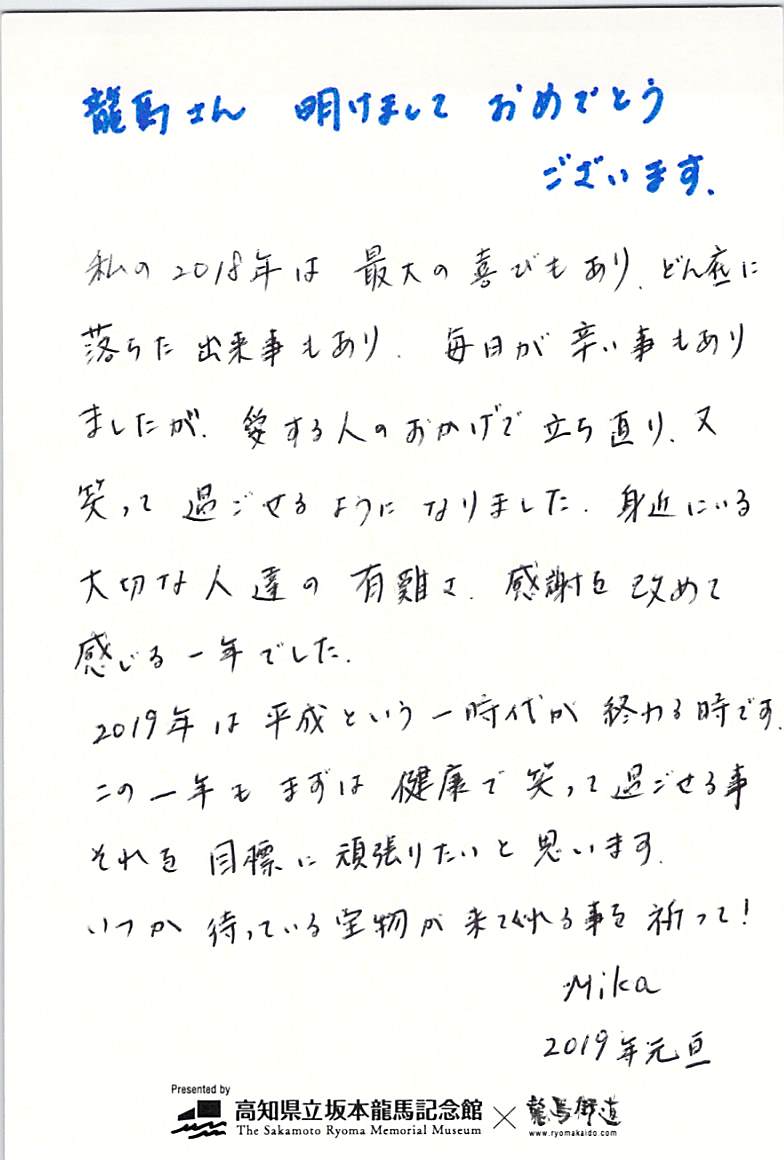 龍馬さん 明けまして おめでとう
ございます.
私の2018年は 最大の喜びもあり、どん底に
落ちた出来事もあり、毎日が辛い事もあり
ましたが、愛する人のおかげで立ち直り、又
笑って過ごせるようになりました。身近にいる
大切な人達の有難さ、感謝を改めて
感じる一年でした。
2019年は平成という一時代が終わる時です。
この一年もまずは健康で笑って過ごせる事
それを目標に頑張りたいと思います。
いつか待っている宝物が来てくれる事を祈って!
Mika
2019年元旦
Presented by
高知県立坂本龍馬記念館 × 龍馬街道
The Sakamoto Ryoma Memorial Museum www.ryomakaido.com